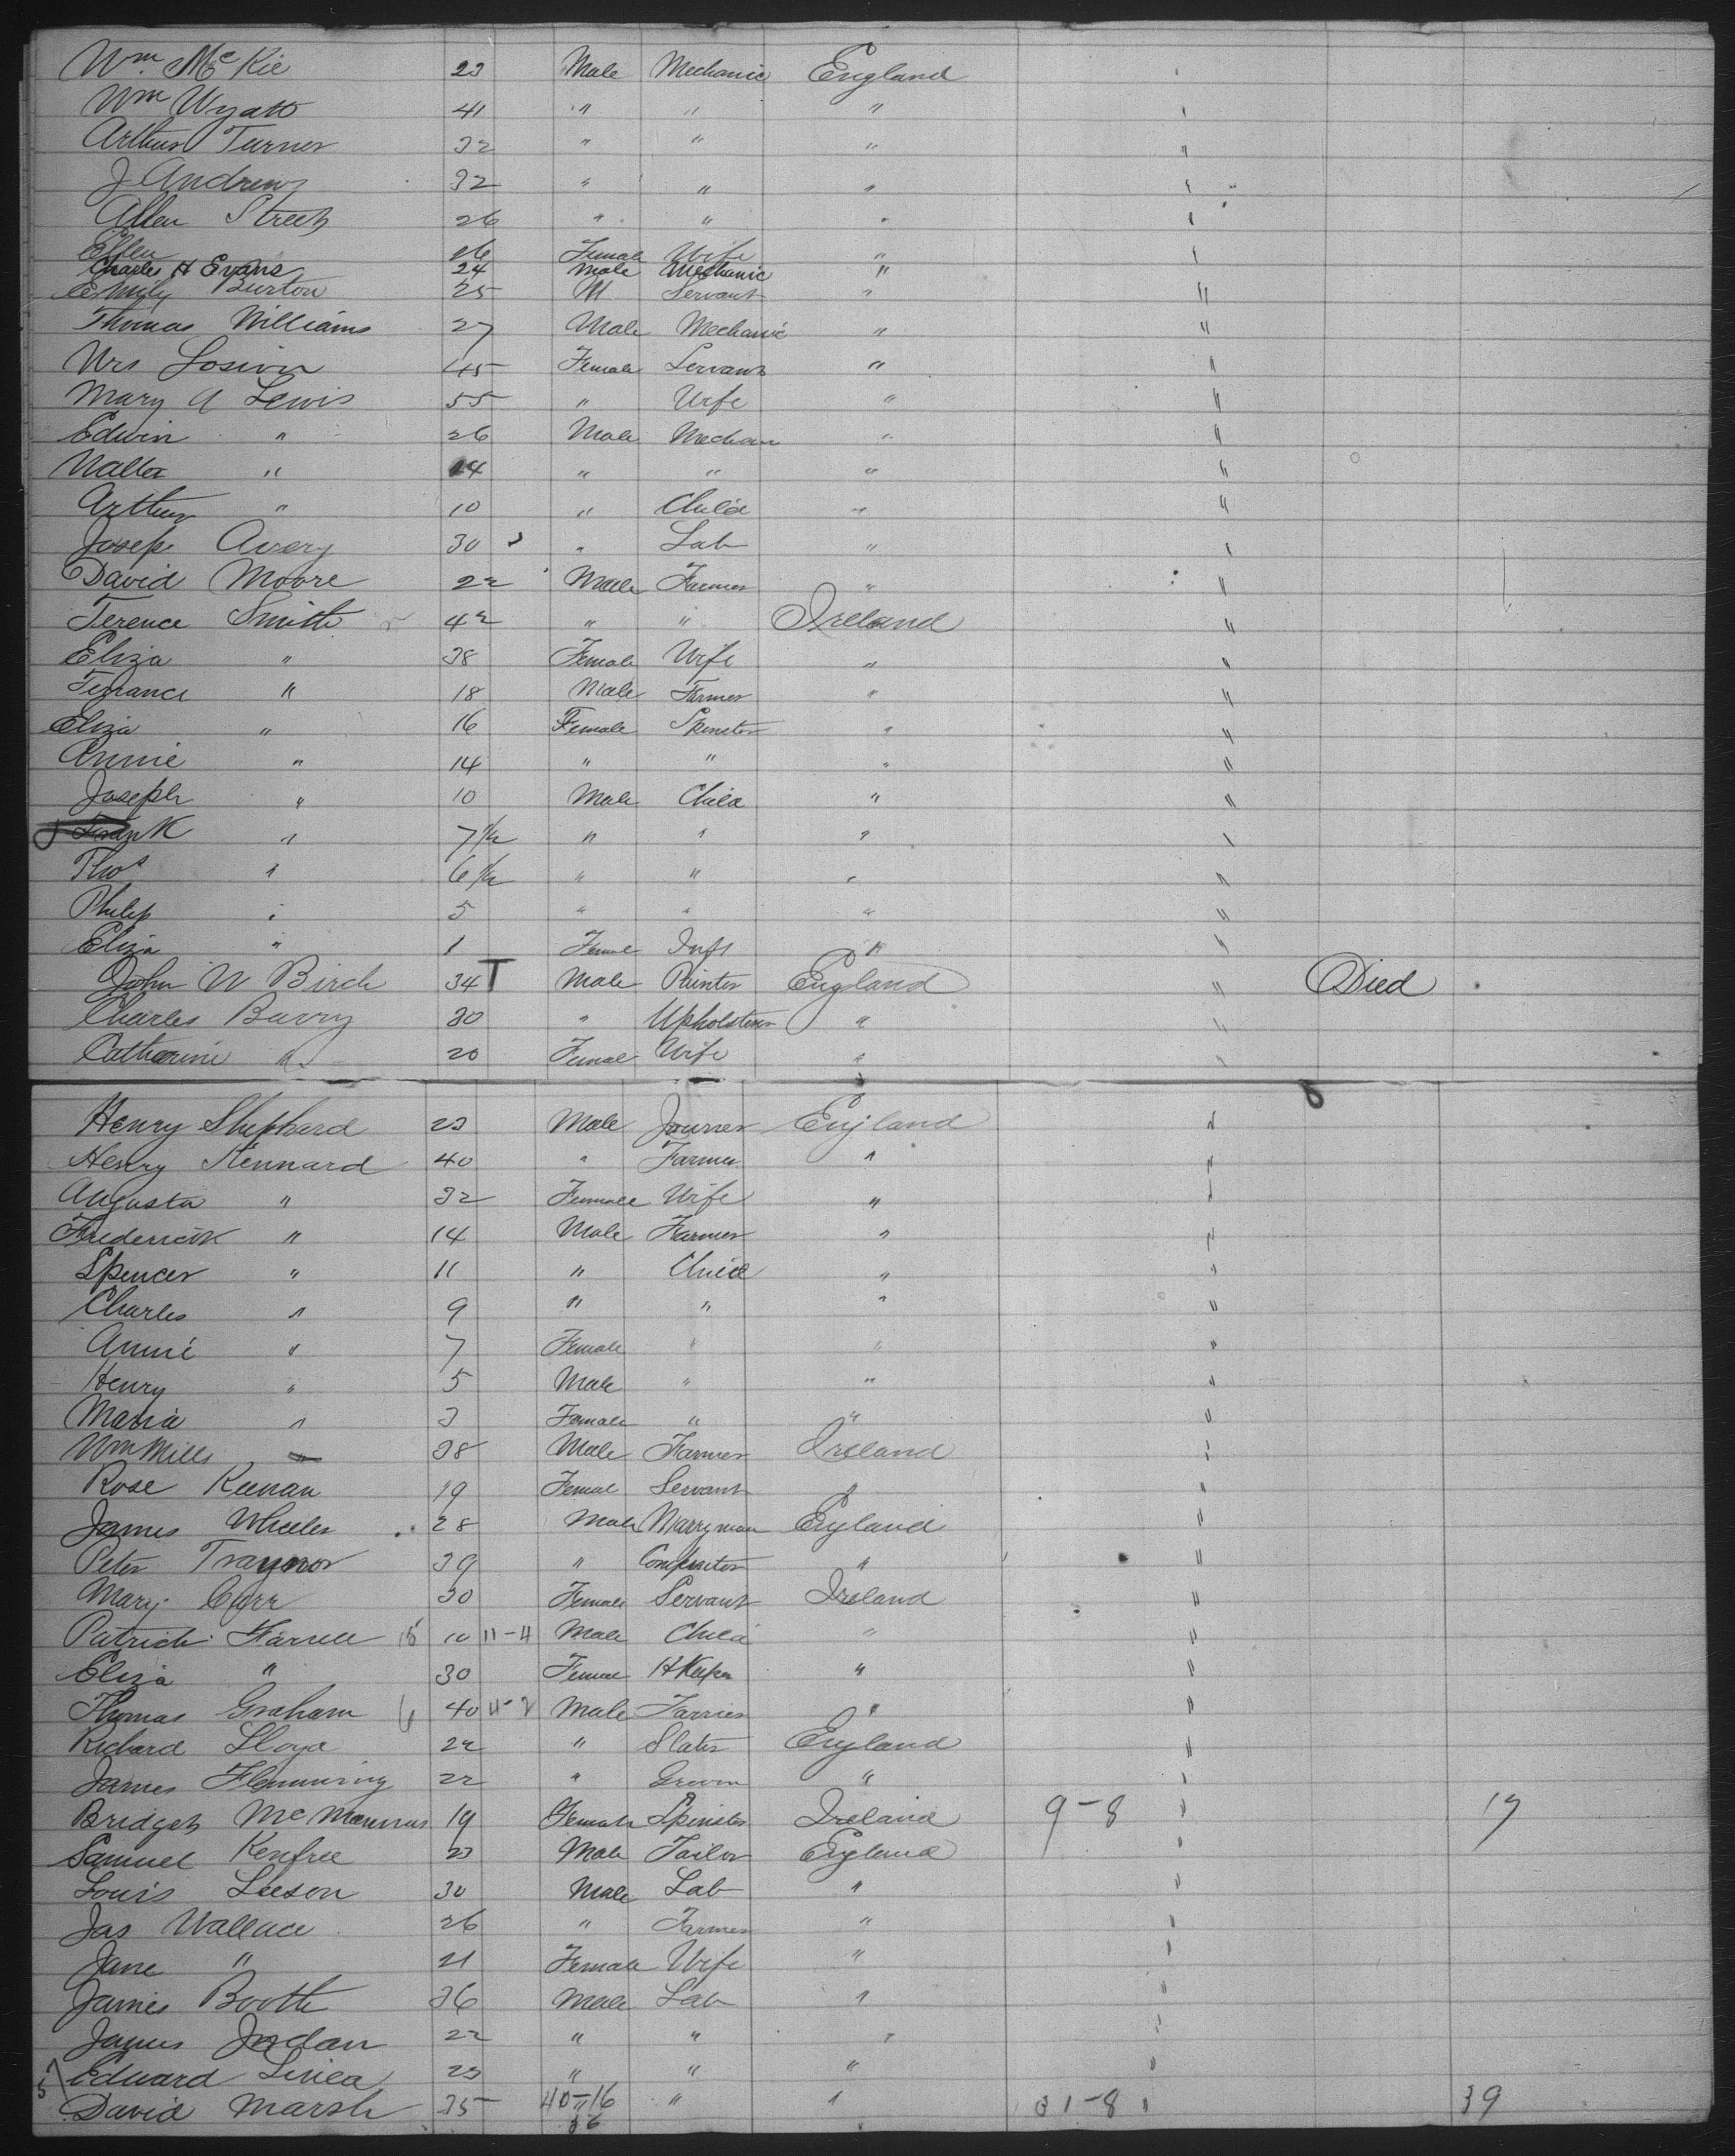 Wm McKie 23 Male Mechanic England "
Wm Wyatt 41 " " " "
Arthur Turner 32 " " " "
J Andrews 32 " " " "
Allen Street 26 " " " "
Ellen 26 Female Wife " "
Charles H Evans 24 Male Mechanic "
Emily Burton 25 Servant " "
Thomas Williams 27 Male Mechanic " "
Mrs 45 Female Servant " "
Mary A Lewis 55 " Wife " "
Edwin " 26 Male Mechan " "
Walter " 14 " " " "
Arthur " 10 " Child " "
Joseph Avery 30 " Lab " "
David Moore 22 Male Farmer " "
Terence Smith 42 " " Ireland "
Eliza " 38 Female Wife " "
Terrance " 18 Male Farmer " "
Eliza " 16 Female Spinster " "
Annie " 14 " " " "
Joseph " 10 Male Child " "
Frank " 7 1/2 " " " "
Thos " 6 1/2 " " " "
Philip " 5 " " " "
Eliza " 1 Female Inft " "
John W Birch 34 T Male Painter England " Died
Charles Barry 30 " Upholsterer " "
Catharine " 20 Female Wife " "
Henry Shephard 23 Male Joiner England "
Henry Kennard 40 " Farmer " "
Augusta " 32 Female Wife " "
Frederick " 14 Male Farmer " "
Spencer " 11 " Child " "
Charles " 9 " " " "
Annie " 7 Female " " "
Henry " 5 Male " " "
Maria " 3 Female " " "
Wm Mills 38 Male Farmer Ireland "
Rose Keenan 19 Female Servant " "
James Wheeler 28 Male England "
Peter Traynor 39 " Compositor " "
Mary Carr 30 Female Servant Ireland "
Patrick Farrell 10 11-4 Male Child " "
Eliza " 30 Female H Keeper " "
Thomas Graham 40 Male Farrier " "
Richard Lloyd 22 " Slater England "
James Flemming 22 " Groom " "
Bridget McMannus 19 Female Spinster Ireland 9-8 " 17
Samuel Renfree 23 Male Tailor England "
Louis Leeson 30 Male Lab " "
Jas Wallace 26 " Farmer " "
Jane " 21 Female Wife " "
James Booth 36 Male Lab " "
James Jordan 22 " " " "
Edward 23 " " " "
David Marsh 35 40-16 " " 31-8 " 39
36